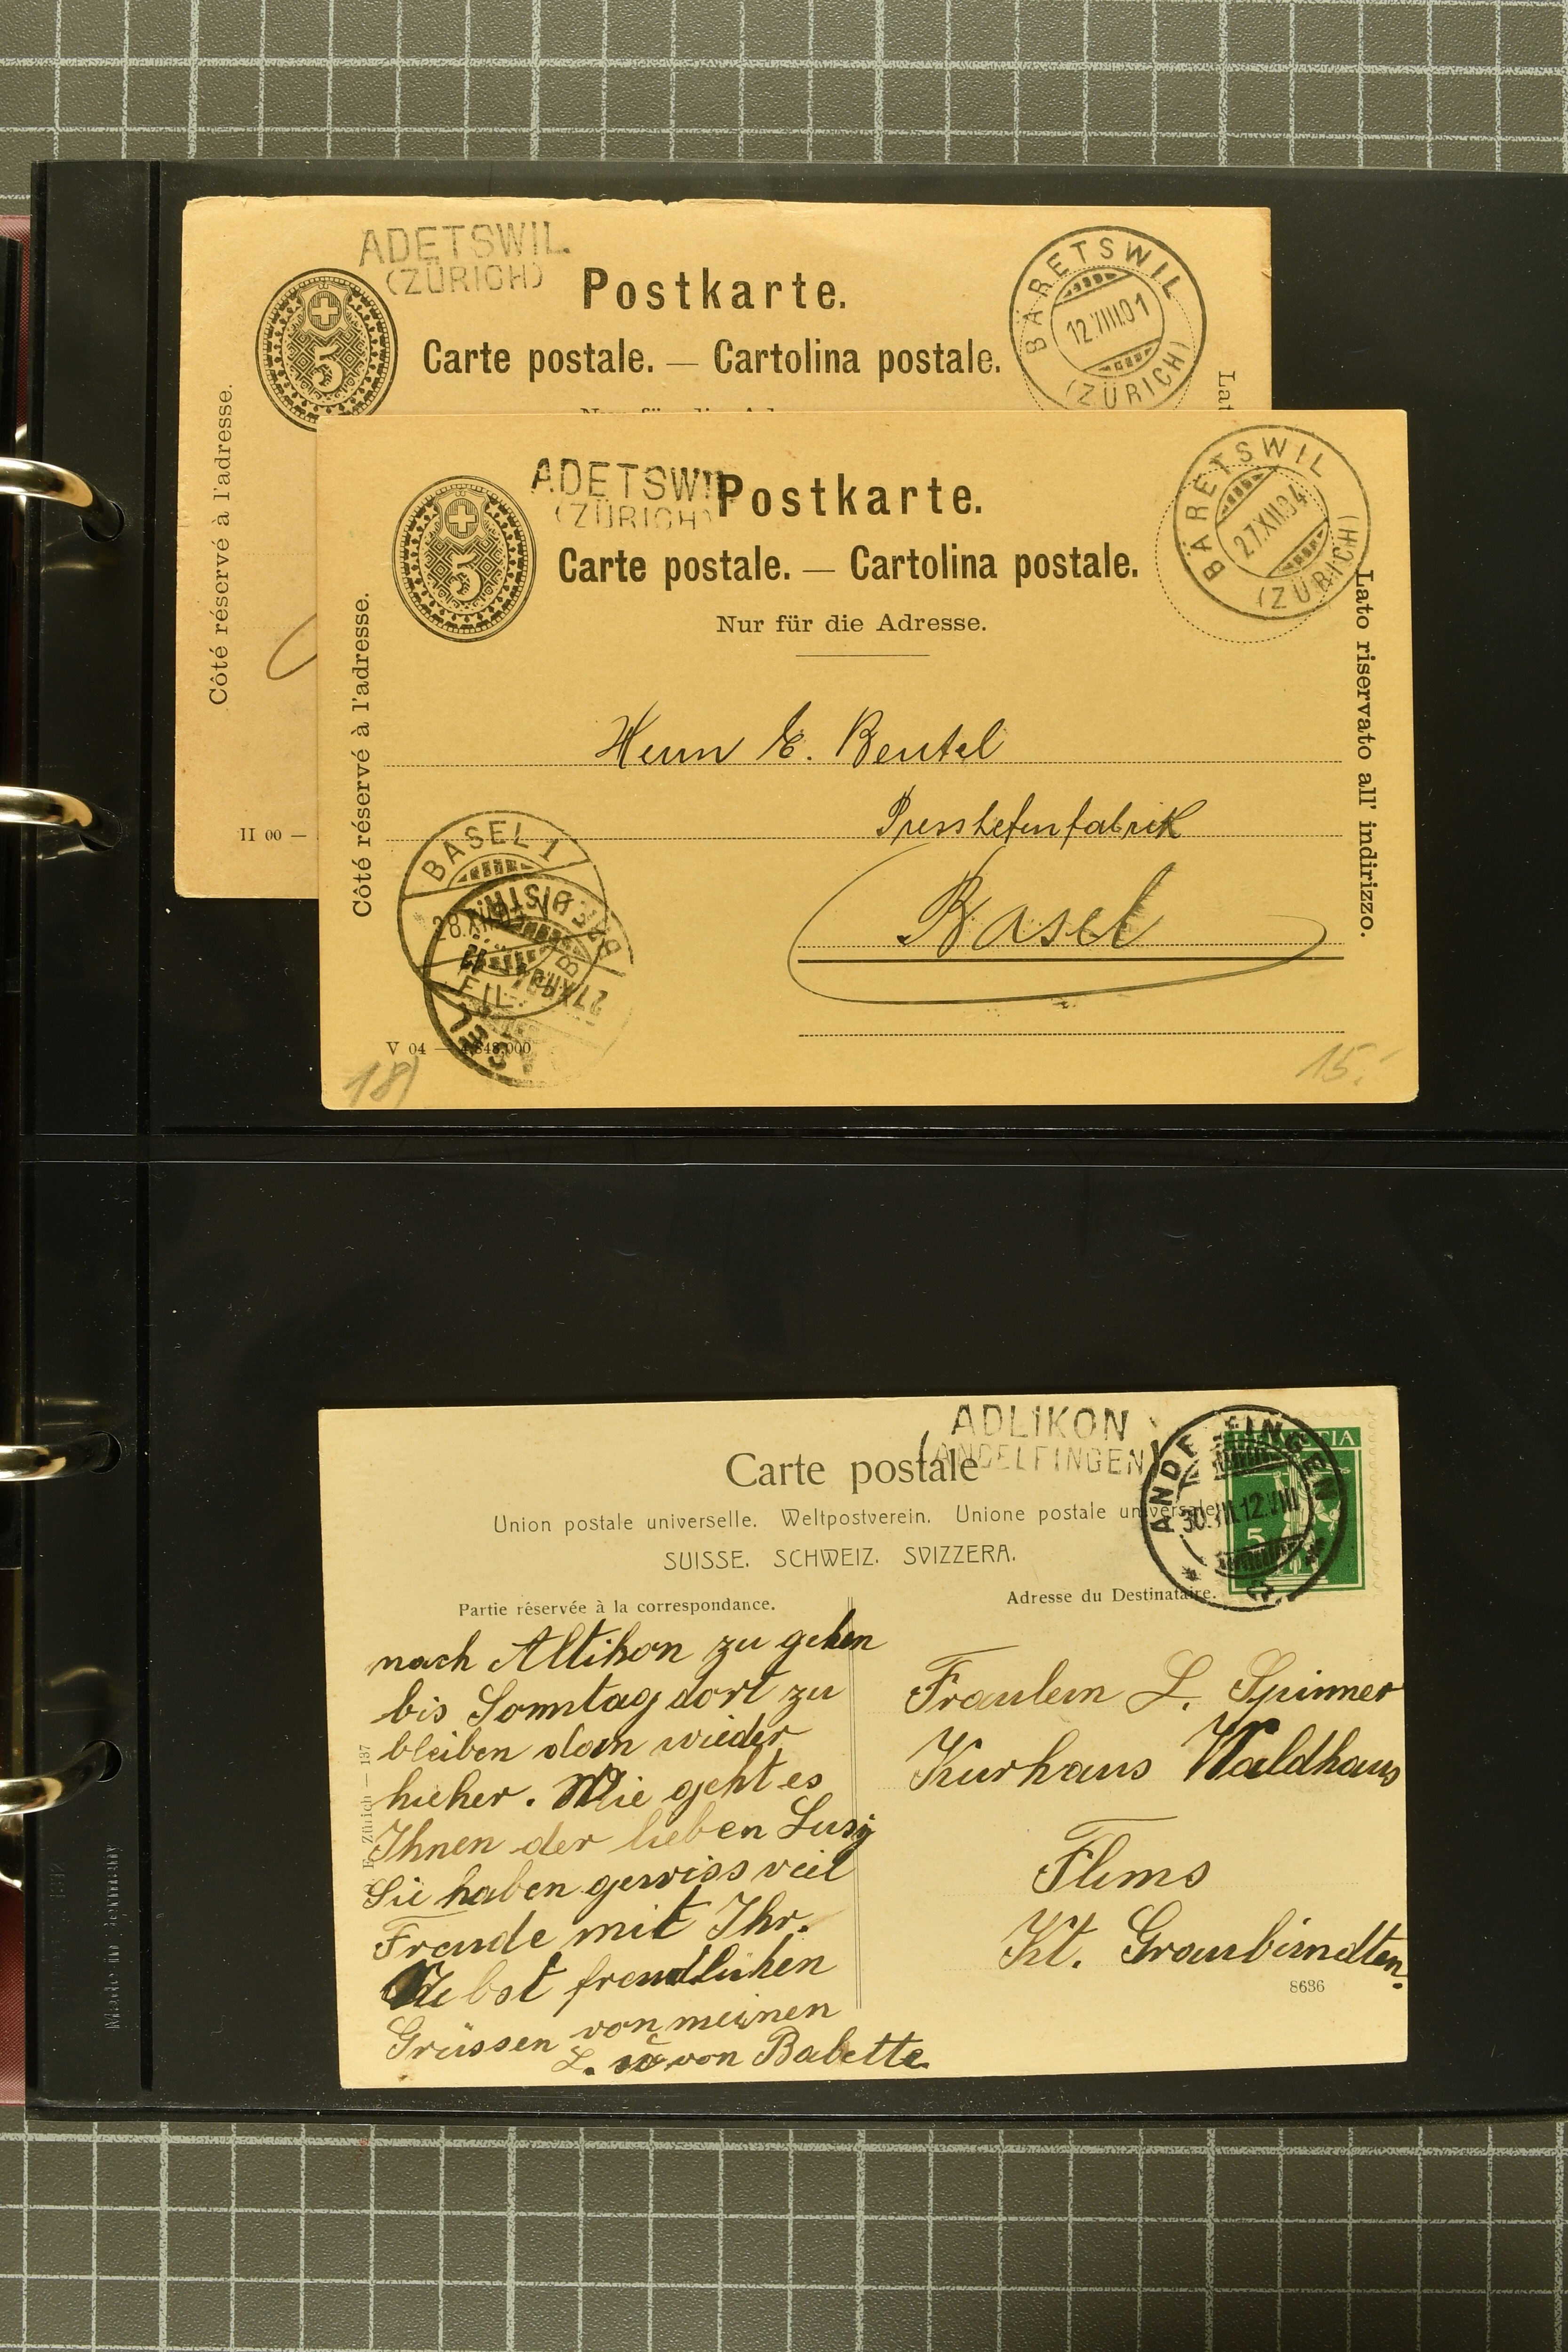 ADETSWIL.
(ZÜRICH)
5
Postkarte.
Carte postale. — Cartolina postale.
BÄRETSWIL
12.VIII.01
(ZÜRICH)
Côté réservé à l'adresse.
Lat
II 00 —
ADETSWIL
(ZÜRICH)
5
Postkarte.
Carte postale. — Cartolina postale.
Nur für die Adresse.
BÄRETSWIL
27.XII.04
(ZÜRICH)
Côté réservé à l'adresse.
Lato riservato all' indirizzo.
Herrn E. Beutel
Presshefenfabrik
Basel
BASEL 1
28.XII
FIL.
V 04 —
18)
15.-
ADLIKON
(ANDELFINGEN)
Carte postale
Union postale universelle. Weltpostverein. Unione postale universale
SUISSE. SCHWEIZ. SVIZZERA.
ANDELFINGEN
30.VII.12.VIII
5
Partie réservée à la correspondance.
Adresse du Destinataire.
nach Altikon zu gehen
bis Sonntag dort zu
bleiben dan wieder
hieher. Wie geht es
Ihnen der lieben Lusy
Sie haben gewiss veil
Freude mit Ihr.
Nebst freudlichen
Grüssen von meinen
L. u von Babette
Zürich — 137
Fraulein L. Spinner
Kurhaus Waldhaus
Flims
Kt. Graubündten.
8636
Made in Germany